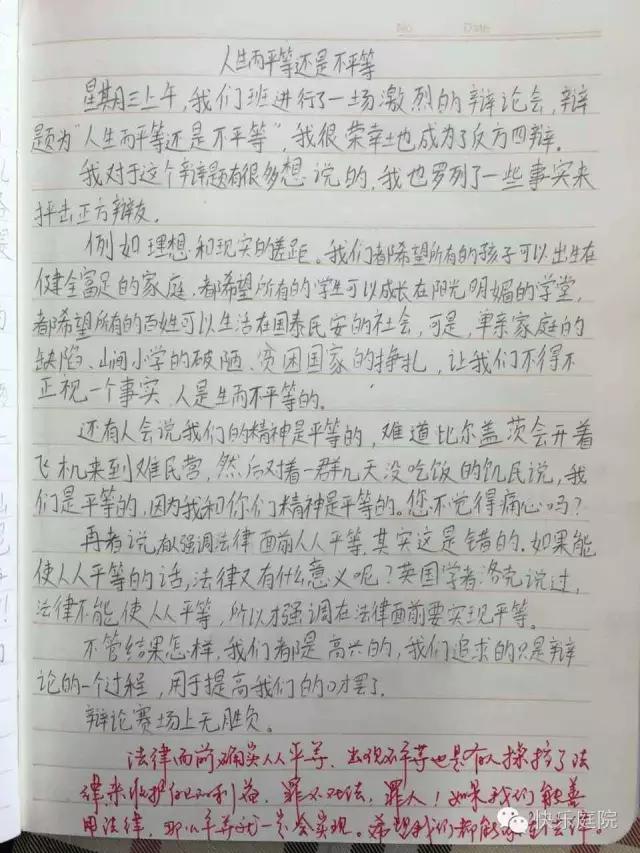 No.
Date
人生而平等还是不平等
星期三上午,我们班进行了一场激烈的辩论会,辩
题为“人生而平等还是不平等”,我很荣幸土也成为了反方四辩。
我对于这个辩题有很多想说的,我也罗列了一些事实来
抨击正方辩友。
例如理想和现实的差距。我们都希望所有的孩子可以出生在
健全富足的家庭,都希望所有的学生可以成长在阳光明媚的学堂,
都希望所有的百姓可以生活在国泰民安的社会,可是,单亲家庭的
缺陷、山间小学的破陋、贫困国家的挣扎,让我们不得不
正视一个事实,人是生而不平等的。
还有人会说我们的精神是平等的,难道比尔盖茨会开着
飞机来到难民营,然后对着一群几天没吃饭的饥民说,我
们是平等的,因为我和你们精神是平等的。您不觉得痛心吗?
再者说,有人强调法律面前人人平等,其实这是错的。如果能
使人人平等的话,法律又有什么意义呢?英国学者洛克说过,
法律不能使人人平等,所以才强调在法律面前要实现平等。
不管结果怎样,我们都是高兴的,我们追求的只是辩
论的一个过程,用于提高我们的口才罢了。
辩论赛场上无胜负。
法律面前确实人人平等,出现不平等也是有人操控了法
律来维护他的利益,罪不在法,罪人!如果我们能善
用法律,那么平等就一定会实现。希望我们都能
快乐庭院